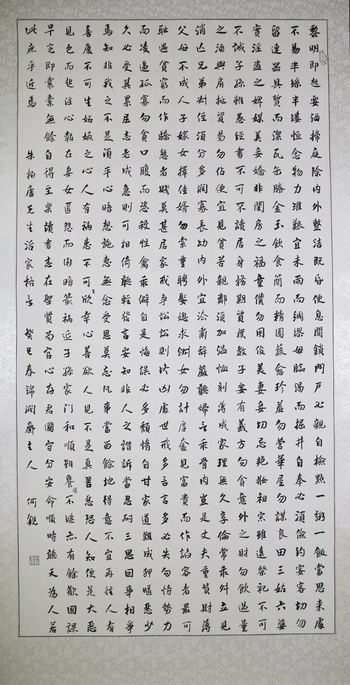 黎明即起要洒掃庭除内外整洁既昏便息関鎖門戶必親自檢點一粥一飯當思来處
不易半絲半縷恒念物力維艱宜未雨而綢繆毋臨渴而掘井自奉必須儉約宴客切勿
留連器具質而潔瓦缶勝金玉飲食簡而精園蔬愈珍羞勿營華屋勿謀良田三姑六婆
實淫盗之媒美妾嬌非閨房之福童僕勿用俊美妻妾切忌艷粧祖宗雖遠祭祀不可
不誠子孫雖愚经書不可不讀居身務期質樸教子要有義方勿貪意外之財勿飲過量
之酒與肩挑貿易勿佔便宜見貧苦親鄰須加温恤刻薄成家理無久享倫常乖舛立見
消亡兄弟叔侄須分多潤寡長幼内外宜法肅辭嚴聽婦言乖骨肉豈是丈夫重貲財薄
父母不成人子嫁女擇佳婿勿索重聘娶媳求淑女勿計厚奩見富貴而作諂容者最可
恥遇貧窮而作驕態者賤莫甚居家戒爭訟訟則終凶處世戒多言言多必失勿恃勢力
而凌逼孤寡勿貪口腹而恣殺牲禽乖僻自是悔誤必多頹惰自甘家道難成狎暱惡少
久必受其累屈志老成急則可相倚輕聽發言安知非人之譖訴當忍耐三思因事相爭
焉知非我之不是須平心暗想施惠無念受恩莫忘凡事當留餘地得意不宜再往人有
喜慶不可生妒嫉之心人有禍患不可欣幸心善欲人見不是真善惡恐人知便是大惡
見色而起淫心報在妻女匿怨而用暗箭禍延子孫家門和順雖饔飧不継亦有餘歡國課
早完即囊橐無餘自得至樂讀書志在聖賢為官心存君國守分安命順時聽天為人若
此庶乎近焉 朱柏廬先生治家格言 癸巳春錦潤齋主人 何